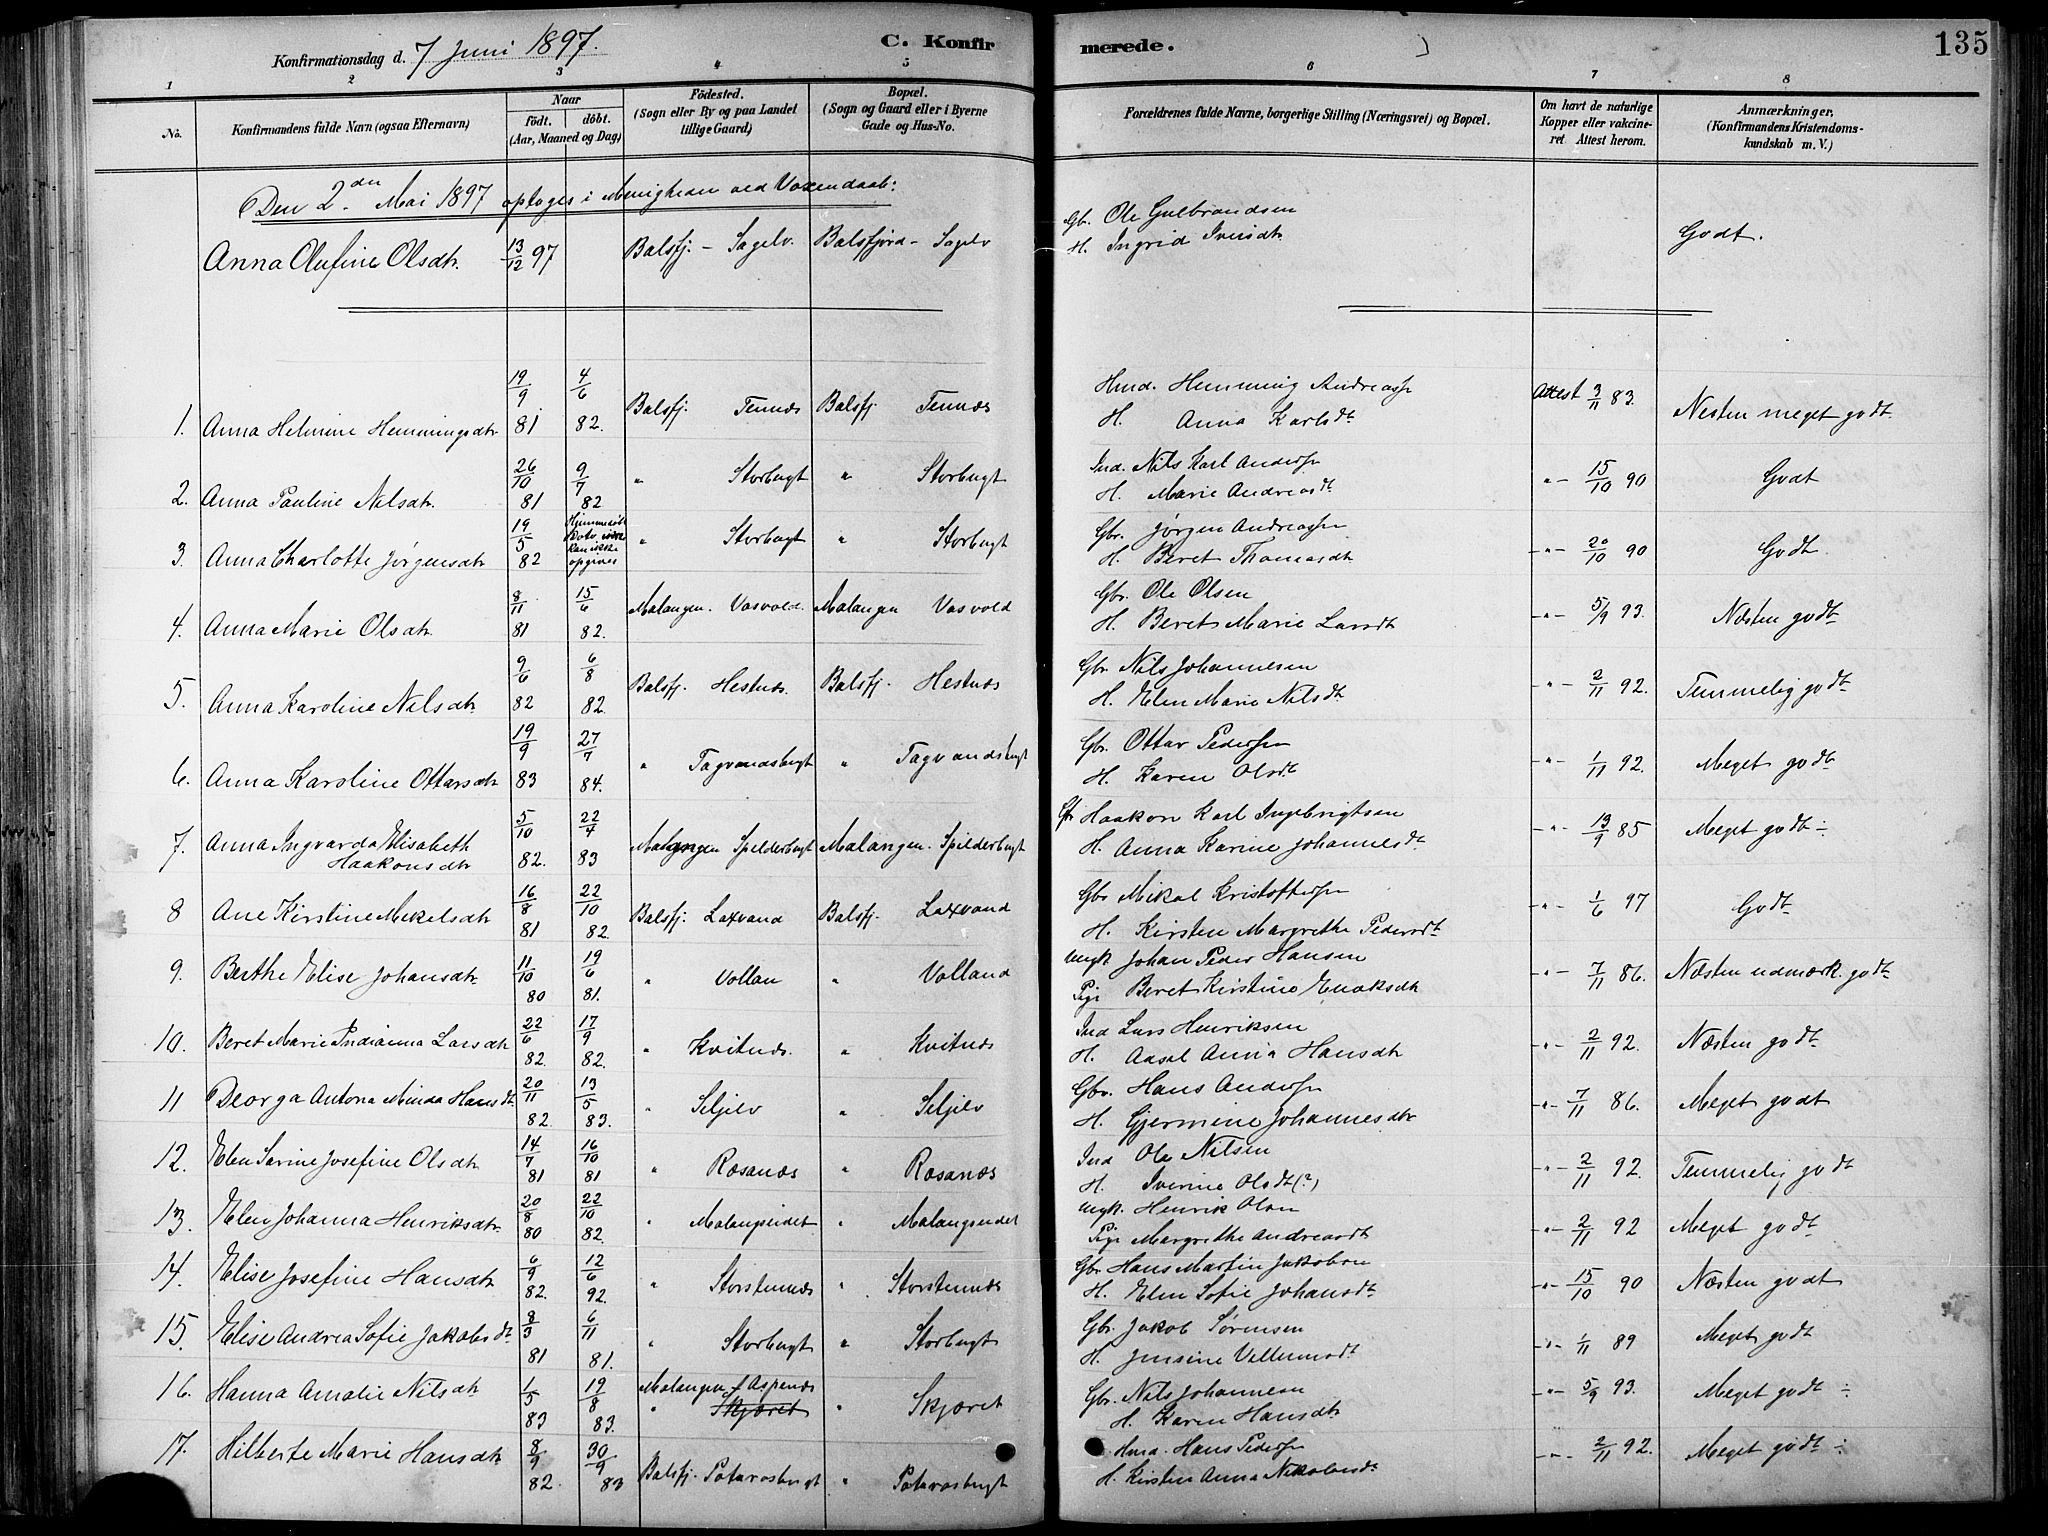 Konfirmationsdag d. 7 Juni 1897.
C. Konfirmerede.
135
1 2 3 4 5 6 7 8
No.
Konfirmandens fulde Navn (ogsaa Efternavn)
Naar
födt. döbt.
(Aar, Maaned og Dag)
Födested.
(Sogn eller By og paa Landet
tillige Gaard)
Bopæl.
(Sogn og Gaard eller i Byerne
Gade og Hus-No.
Forældrenes fulde Navne, borgerlige Stilling (Næringsvei) og Bopæl.
Om havt de naturlige
Kopper eller vakcine-
ret Attest herom.
Anmærkninger,
(Konfirmandens Kristendoms-
kundskab m. V.)
Den 2den Mai 1897 optoges i Menigheden ved
Anna Olufine Olsdtr. 13/12 97 Balsfj. - Sagelv. Balsfjord - Sagelv Gb. Ole Gulbrandsen
H. Ingrid Iversdtr. Godt.
1. Anna Helmine Hemmingsdtr. 19/9 81 4/6 82. Balsfj. Tennæs Balsfj. Tennæs Hmd. Hemming Andreass.
H. Anna Karlsdt. Attest 3/11 83. Nesten meget godt
2. Anna Pauline Nilsdtr. 26/10 81 9/7 82 " Storbugt " Storbugt Ind. Nils Karl Anders.
H. Marie Andreasdt. -"- 15/10 90 Godt
3. Anna Charlotte Jörgensdtr. 19/5 82 Hjemmedöbt Dato kan ikke opgives " Storbugt " Storbugt Gbr. Jörgen Andreass.
H. Beret Thomasdtr. -"- 20/10 90 Godt.
4. Anna Marie Olsdtr. 8/11 81 15/6 82. Malangen. Vasvold. Malangen Vasvold Gbr. Ole Olsen
H. Beret Marie Larsdt. -"- 5/9 93. Næsten godt
5. Anna Karoline Nilsdtr. 9/6 82 6/8 82. Balsfj. Hestnæs. Balsfj. Hestnæs Gbr. Nils Johannesen
H. Elen Marie Nilsdt. -"- 2/11 92. Temmelig godt
6. Anna Karoline Ottarsdtr. 19/9 83 27/7 84. " Tagvandsbugt " Tagvandsbugt Gbr. Ottar Peders.
H. Karen Olsdt. -"- 1/11 92. Meget godt
7. Anna Ingvarda Elisabeth
Haakonsdtr. 5/10 82. 22/4 83 Malangen Spilderbugt Malangen. Spilderbugt Haakon Karl Ingebrigtsen
H. Anna Karine Johannesdt. -"- 13/9 85 Meget godt ÷
8 Ane Kirstine Mikelsdtr. 16/8 81 22/10 82. Balsfj. Laxvand Balsfj. Laxvand Gbr. Mikal Kristoffers.
H. Kirsten Margrethe Pedersdt. -"- 1/6 97 Godt
9. Berthe Elise Johansdtr. 11/10 80 19/6 81. " Vollan " Volland Ungk. Johan Peder Hansen
Pige Beret Kirstine Enoksdtr. -"- 7/11 86. Næsten udmærk. godt
10. Beret Marie Indianna Larsdtr. 22/6 82. 17/9 82. " Kvitnæs. " Kvitnæs Ind Lars Henriksen
H. Aasel Anna Hansdtr. -"- 2/11 92. Næsten godt
11 Deorga Antona Minda Hansdt. 20/11 82. 13/5 83. " Seljelv " Seljelv Gbr. Hans Anders.
H. Gjermine Johannesdtr. -"- 7/11 86. Meget godt
12. Elen Serine Josefine Olsdtr. 14/7 81 16/10 81 " Rosanæs " Rosanæs Ind Ole Nilsen
H. Iverine Olsdt. (?) -"- 2/11 92. Temmelig godt
13. Elen Johanna Henriksdtr. 20/8 80 22/10 82. " Malangseidet " Malangseidet Ungk. Henrik Olsen
Pige Margrethe Andreasdt. -"- 2/11 92 Meget godt
14. Elise Josefine Hansdtr. 6/9 82. 12/6 92. " Storstennæs " Storstennæs Gbr. Hans Martin Jakobsen
H. Elen Sofie Johansdt. -"- 15/10 90 Næsten godt
15. Elise Andrea Sofie Jakobsdt. 8/3 81 6/11 81. " Storbugt " Storbugt Gbr. Jakob Sørensen
H. Jensine Vellumsdt. -"- 1/11 89 Meget godt
16. Hanna Amalie Nilsdtr. 1/5 83 19/8 83. Malangen Aspenes
" Skjæret " Skjæret Gbr. Nils Johannesen
H. Karen Hansdtr. -"- 5/9 93. Meget godt ÷
17. Hilberte Marie Hansdtr. 8/9 82. 30/9 83 Balsfj. Potarasbugt " Potarasbugt Hmd. Hans Peders.
H. Kirsten Anna Nikolaisdt. -"- 2/11 92. Meget godt ÷